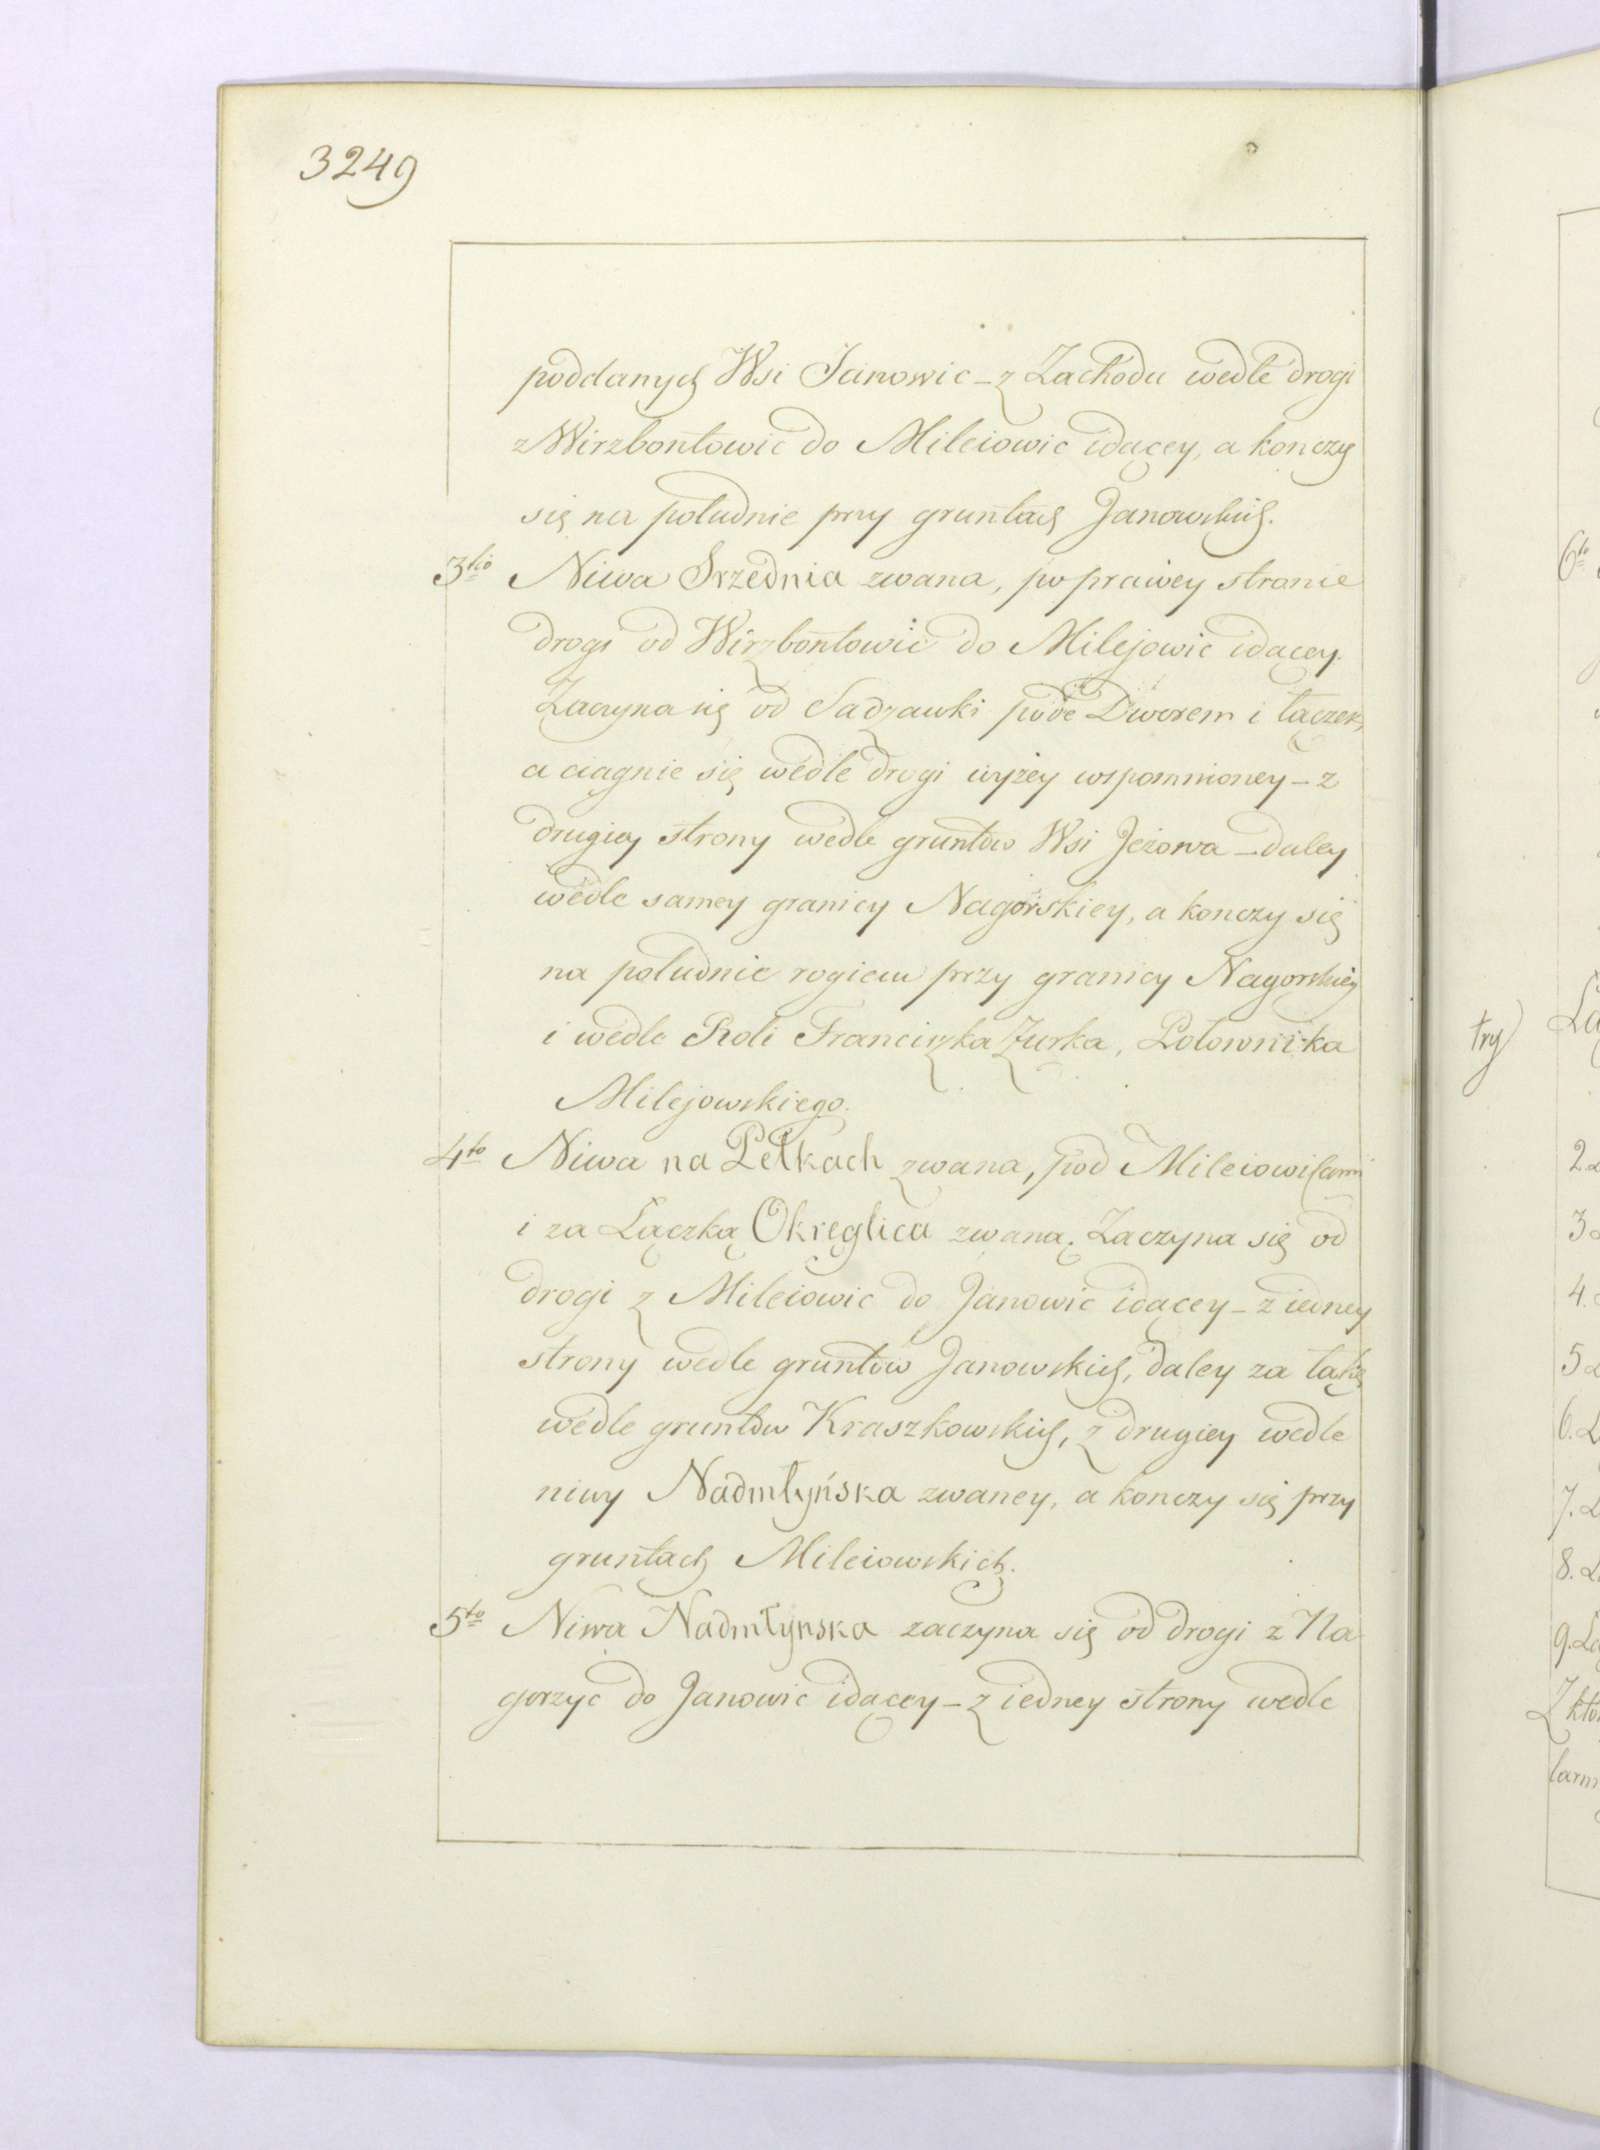 3249
poddanych Wsi Janowic – z Zachodu wedle drogi
z Wirzbontowic do Mileiowic idącey, a konczy
się na południe przy gruntach Janowskich.
3tio Niwa Srzednia zwana, po prawey stronie
drogi od Wirzbontowic do Milejowic idącey.
Zaczyna się od Sadzawki pode Dworem i łączek,
a ciągnie się wedle drogi wyżey wspomnioney – z
drugiey strony wedle gruntów Wsi Jeżowa – daley
wedle samey granicy Nagorskiey, a konczy się
na południe rogiem przy granicy Nagorskiey
i wedle Roli Franciszka Żurka, Połownika
Milejowskiego.
4to Niwa na Pełkach zwana, pod Mileiowicami
i za Łączką Okręglica zwaną. Zaczyna się od
drogi z Mileiowic do Janowic idącey – z iedney
strony wedle gruntów Janowskich, daley za łąką
wedle gruntów Kraszkowskich, z drugiey wedle
niwy Nadmłyńska zwaney, a konczy się przy
gruntach Mileiowskich.
5to Niwa Nadmłynska zaczyna się od drogi z Na
gorzyc do Janowic idącey – z iedney strony wedle
6to
try
2.
3
4.
5
6.
7.
8.
9.